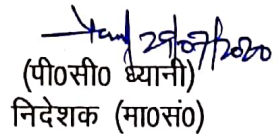 29/07/2020
(पी0सी0 ध्यानी)
निदेशक (मा0सं0)